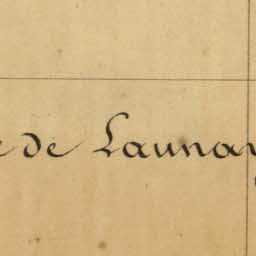 e de Launay